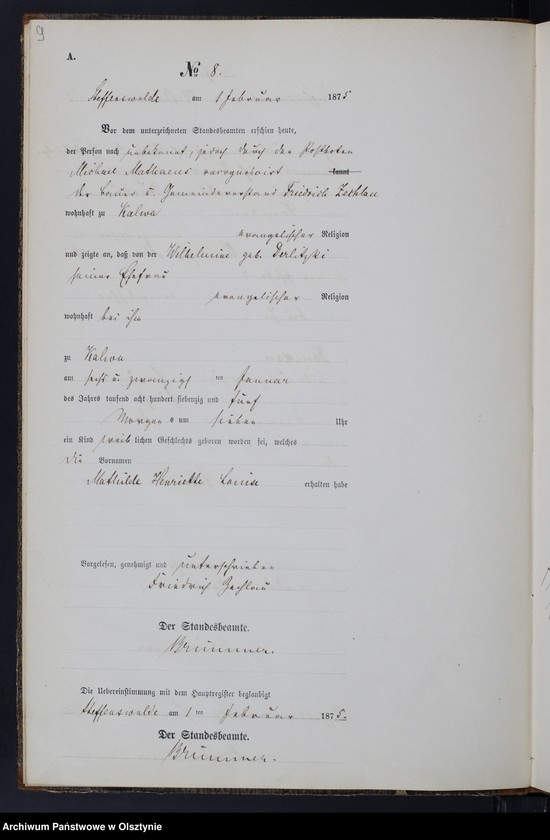 9
A.
No 8.
Steffenswalde am 1 Februar 1875
Vor dem unterzeichneten Standesbeamten erschien heute,
der Person nach unbekannt, jedoch durch den Postboten
Michael Mathaeus recognoscirt kannt
der Bauer u. Gemeindevorstand Friedrich Zechlau
wohnhaft zu Kalwa
evangelischer Religion
und zeigte an, daß von der Wilhelmine geb. Derlitzki
seiner Ehefrau
evangelischer Religion
wohnhaft bei ihm
zu Kalwa
am sechs u. zwanzigst ten Januar
des Jahres tausend acht hundert siebenzig und fünf
Morgens um sieben Uhr
ein Kind weiblichen Geschlechts geboren worden sei, welches
die Vornamen
Mathilde Henriette Louise erhalten habe
Vorgelesen, genehmigt und unterschrieben
Friedrich Zechlau
Der Standesbeamte.
Brümmer.
Die Uebereinstimmung mit dem Hauptregister beglaubigt
Steffenswalde am 1 ten Februar 1875.
Der Standesbeamte.
Brümmer.
Archiwum Państwowe w Olsztynie